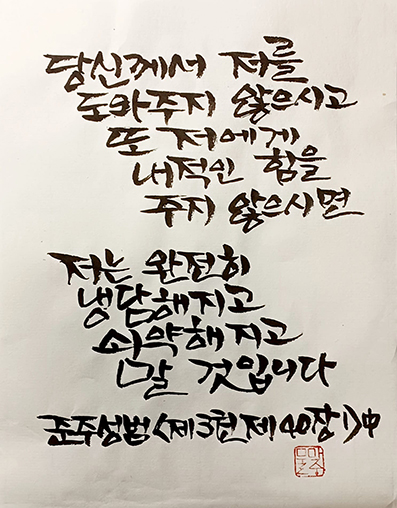 당신께서 저를
도와주지 않으시고
또 저에게
내적인 힘을
주지 않으시면
저는 완전히
냉담해지고
쇠약해지고
말 것입니다
준주성범〈제3권 제40장1〉中